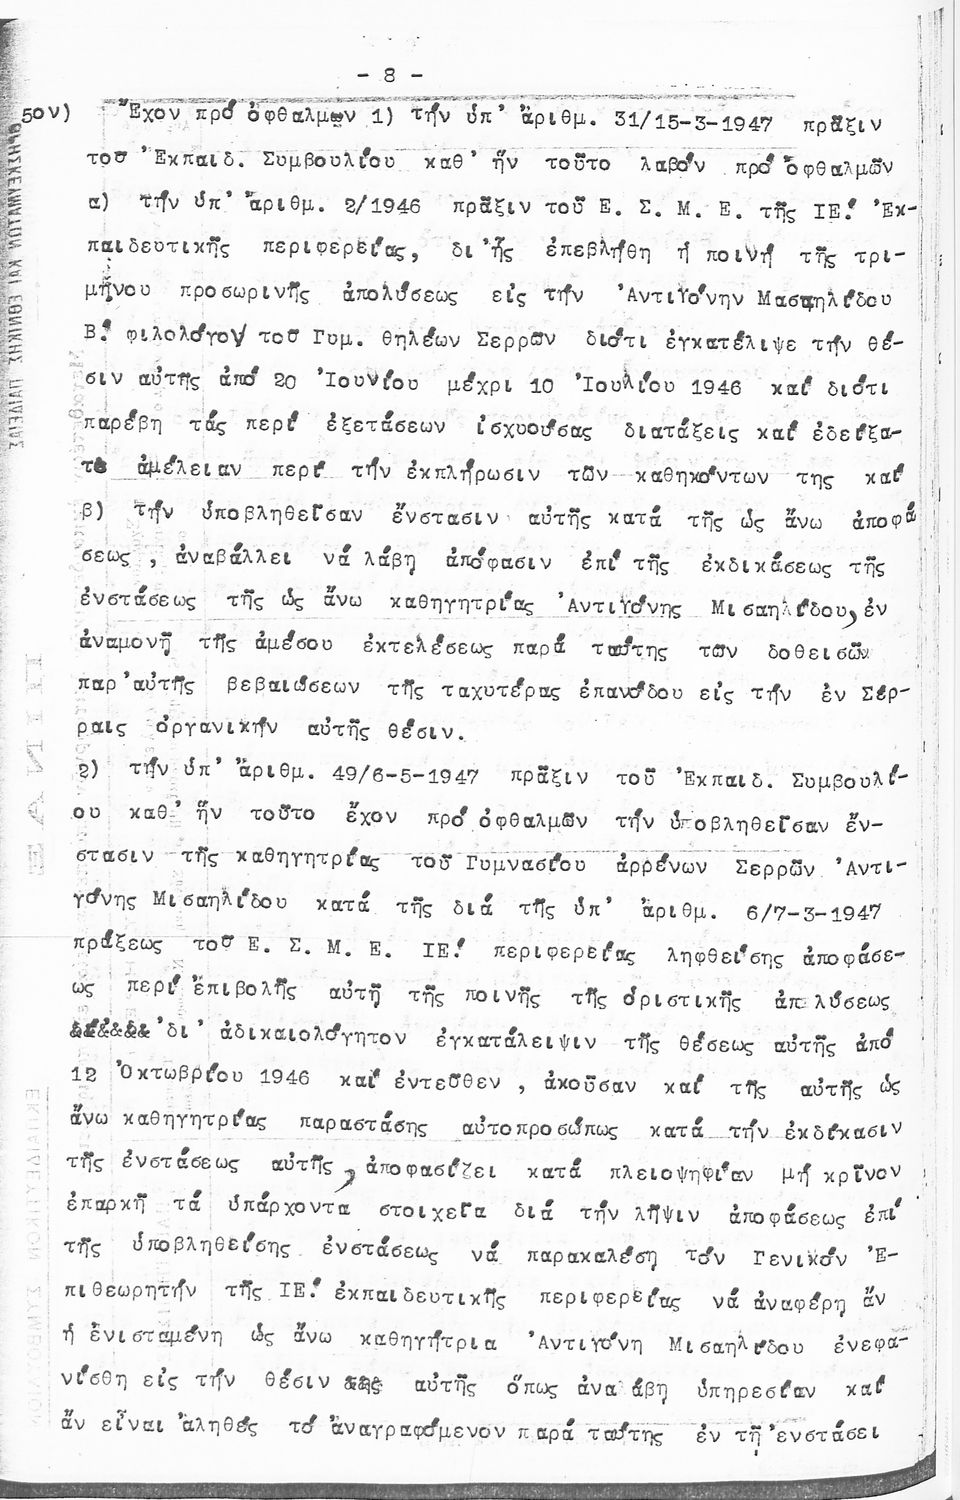 - 8 -
5ον) Ἔχον πρό ὀφθαλμων 1) τήν ὑπ' ἄριθμ. 31/15-3-1947 πρᾶξιν
τοῦ Ἐκπαιδ. Συμβουλίου καθ' ἥν τοῦτο λαβόν πρό ὀφθαλμῶν
α) τήν ὑπ' ἀριθμ. 2/1946 πρᾶξιν τοῦ Ε. Σ. Μ. Ε. τῆς ΙΕ! Ἐκ-
παιδευτικῆς περιφερείας, δι'ἧς ἐπεβλήθη ἡ ποινή τῆς τρι-
μήνου προσωρινῆς ἀπολύσεως εἰς τήν Ἀντιγόνην Μισαηλίδου
Β! φιλολόγον τοῦ Γυμ. θηλέων Σερρῶν διότι ἐγκατέλιψε τήν θέ-
σιν αὐτῆς ἀπό 20 Ἰουνίου μέχρι 10 Ἰουλίου 1946 καί διότι
παρέβη τάς περί ἐξετάσεων ἰσχυούσας διατάξεις καί ἐδείξα-
το ἀμέλειαν περί τήν ἐκπλήρωσιν τῶν καθηκόντων της καί
β) τήν ὑποβληθεῖσαν ἔνστασιν αὐτῆς κατά τῆς ὡς ἄνω ἀποφά
σεως , ἀναβάλλει νά λάβη ἀπόφασιν ἐπί τῆς ἐκδικάσεως τῆς
ἐνστάσεως τῆς ὡς ἄνω καθηγητρίας Ἀντιγόνης Μισαηλίδου, ἐν
ἀναμονῇ τῆς ἀμέσου ἐκτελέσεως παρά ταύτης τῶν δοθεισῶν
παρ'αὐτῆς βεβαιώσεων τῆς ταχυτέρας ἐπανόδου εἰς τήν ἐν Σέρ-
ραις ὀργανικήν αὐτῆς θέσιν.
2) τήν ὑπ' ἄριθμ. 49/6-5-1947 πρᾶξιν τοῦ Ἐκπαιδ. Συμβουλί-
ου καθ' ἥν τοῦτο ἔχον πρό ὀφθαλμῶν τήν ὑποβληθεῖσαν ἔν-
στασιν τῆς καθηγητρίας τοῦ Γυμνασίου ἀρρένων Σερρῶν Ἀντι-
γόνης Μισαηλίδου κατά τῆς διά τῆς ὑπ' ἄριθμ. 6/7-3-1947
πράξεως τοῦ Ε. Σ. Μ. Ε. ΙΕ! περιφερείας ληφθείσης ἀποφάσε-
ως περί ἐπιβολῆς αὐτῇ τῆς ποινῆς τῆς ὁριστικῆς ἀπολύσεως
δι' ἀδικαιολόγητον ἐγκατάλειψιν τῆς θέσεως αὐτῆς ἀπό
12 Ὀκτωβρίου 1946 καί ἐντεῦθεν , ἀκοῦσαν καί τῆς αὐτῆς ὡς
ἄνω καθηγητρίας παραστάσης αὐτοπροσώπως κατά τήν ἐκδίκασιν
τῆς ἐνστάσεως αὐτῆς, ἀποφασίζει κατά πλειοψηφίαν μή κρῖνον
ἐπαρκῆ τά ὑπάρχοντα στοιχεῖα διά τήν λῆψιν ἀποφάσεως ἐπί
τῆς ὑποβληθείσης ἐνστάσεως νά παρακαλέση τόν Γενικόν Ἐ-
πιθεωρητήν τῆς ΙΕ! ἐκπαιδευτικῆς περιφερείας νά ἀναφέρη ἄν
ἡ ἐνισταμένη ὡς ἄνω καθηγήτρια Ἀντιγόνη Μισαηλίδου ἐνεφα-
νίσθη εἰς τήν θέσιν αὐτῆς ὅπως ἀναλάβη ὑπηρεσίαν καί
ἄν εἶναι ἀληθές τό ἀναγραφόμενον παρά ταύτης ἐν τῇ ἐνστάσει